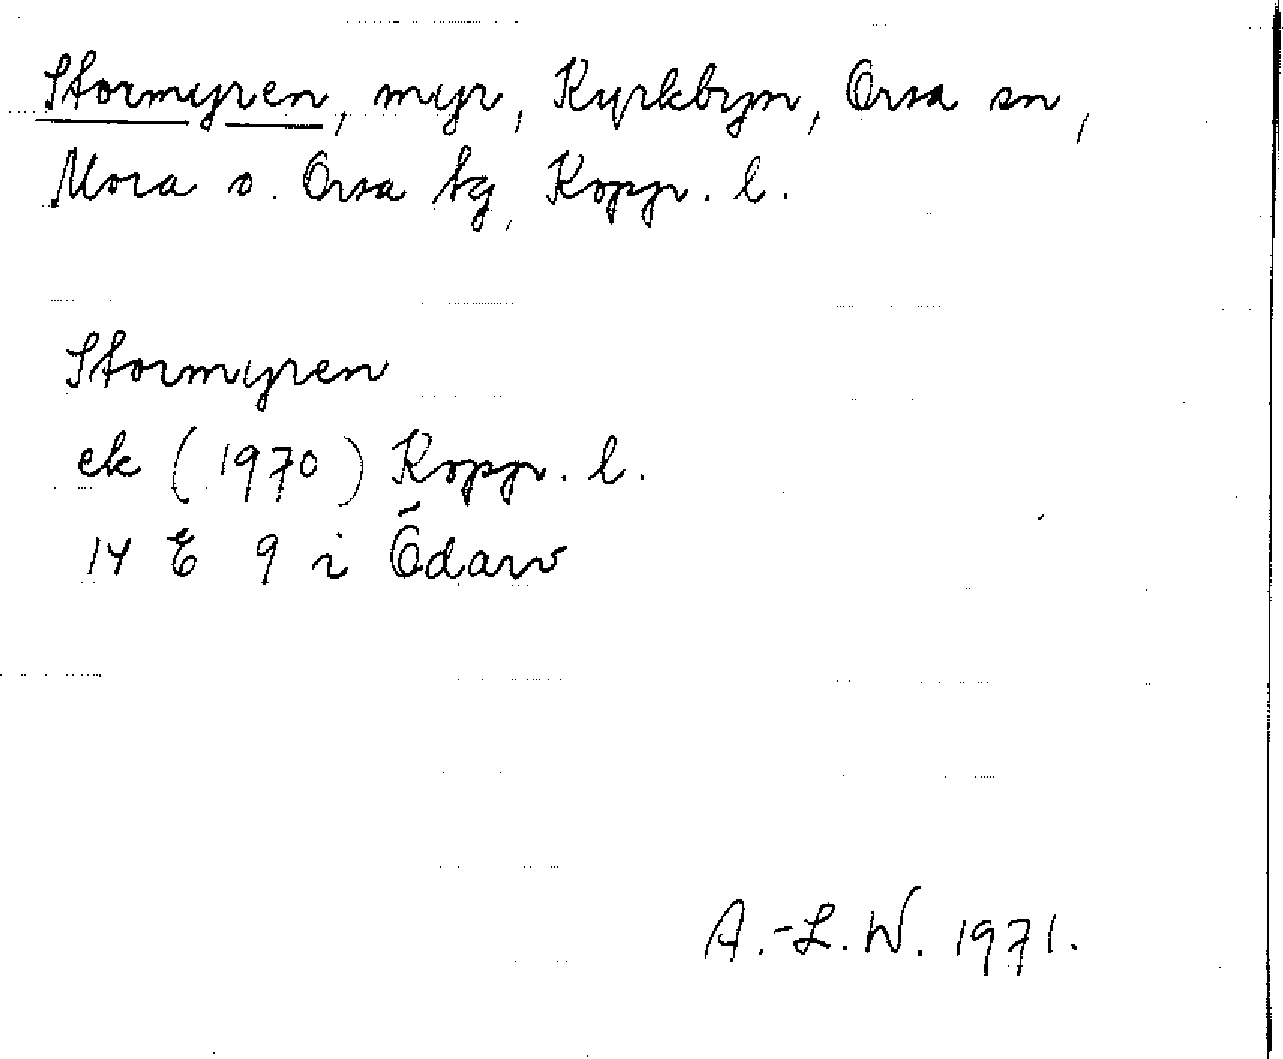 Stormyren, myr, Kyrkbyn, Orsa sn,
Mora o. Orsa tg, Kopp. l.
Stormyren
ek (1970) Kopp. l.
14 E 9 i Ödarv
A.-L. W. 1971.